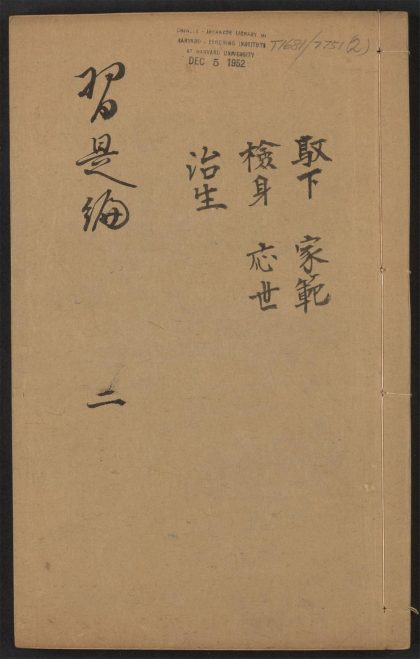 CHINESE - JAPANESE LIBRARY OF
HARVARD - YENCHING INSTITUTE
AT HARVARD UNIVERSITY
DEC 5 1952
T1681/7751(2)
馭下 家範
檢身 応世
治生
習是編
二